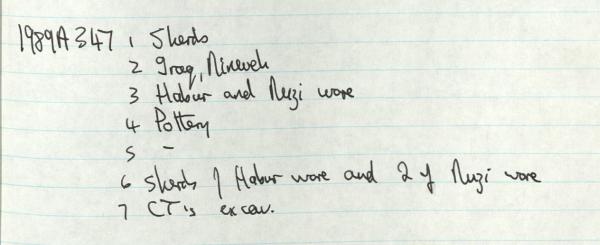 1989A347 1 Sherds
2 Iraq, Nineveh
3 Habur and Nuzi ware
4 Pottery
5 –
6 Sherds 1 Habur ware and 2 of Nuzi ware
7 CT's excav.